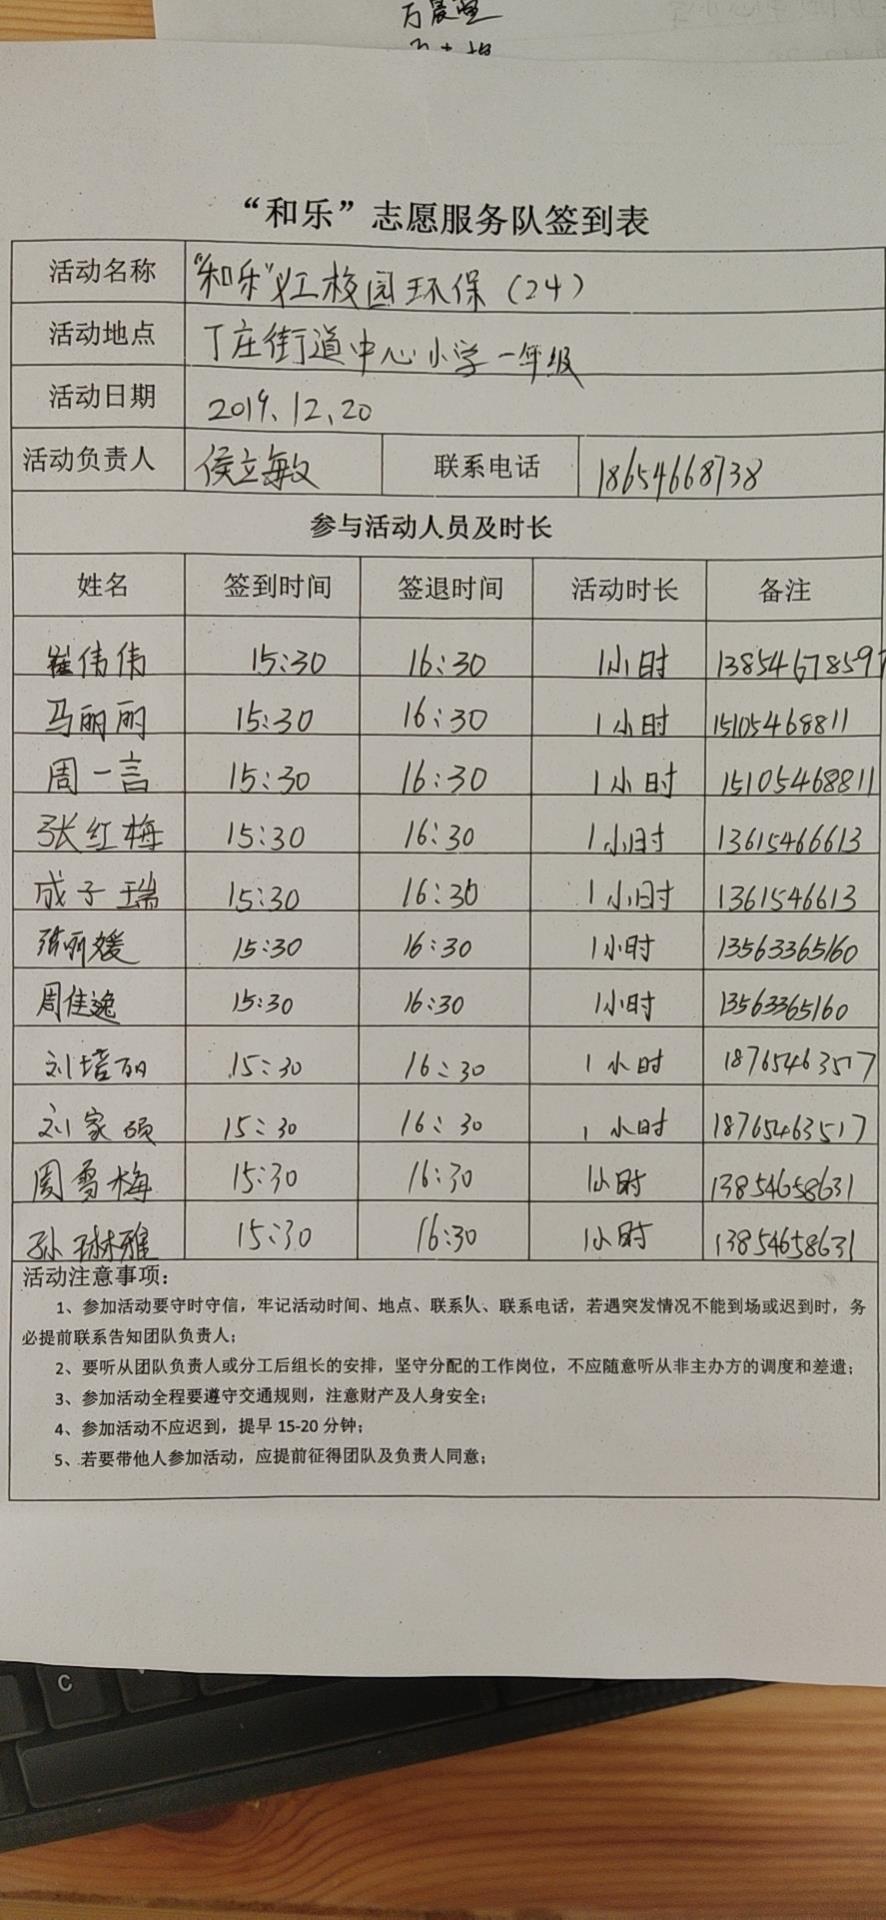 万晨堂
“和乐”志愿服务队签到表
活动名称 “和乐”义工校园环保（24）
活动地点 丁庄街道中心小学一年级
活动日期 2019.12.20
活动负责人 侯立敏 联系电话 18654668738
参与活动人员及时长
姓名 签到时间 签退时间 活动时长 备注
崔伟伟 15:30 16:30 1小时 13854678597
马丽丽 15:30 16:30 1小时 15105468811
周一言 15:30 16:30 1小时 15105468811
张红梅 15:30 16:30 1小时 13615466613
成子瑞 15:30 16:30 1小时 1361546613
张丽媛 15:30 16:30 1小时 13563365160
周佳逸 15:30 16:30 1小时 13563365160
刘培丽 15:30 16:30 1小时 18765463517
刘家硕 15:30 16:30 1小时 18765463517
周雪梅 15:30 16:30 1小时 13854658631
孙琳雅 15:30 16:30 1小时 13854658631
活动注意事项：
1、参加活动要守时守信，牢记活动时间、地点、联系人、联系电话，若遇突发情况不能到场或迟到时，务
必提前联系告知团队负责人；
2、要听从团队负责人或分工后组长的安排，坚守分配的工作岗位，不应随意听从非主办方的调度和差遣；
3、参加活动全程要遵守交通规则，注意财产及人身安全；
4、参加活动不应迟到，提早 15-20 分钟；
5、若要带他人参加活动，应提前征得团队及负责人同意；
C